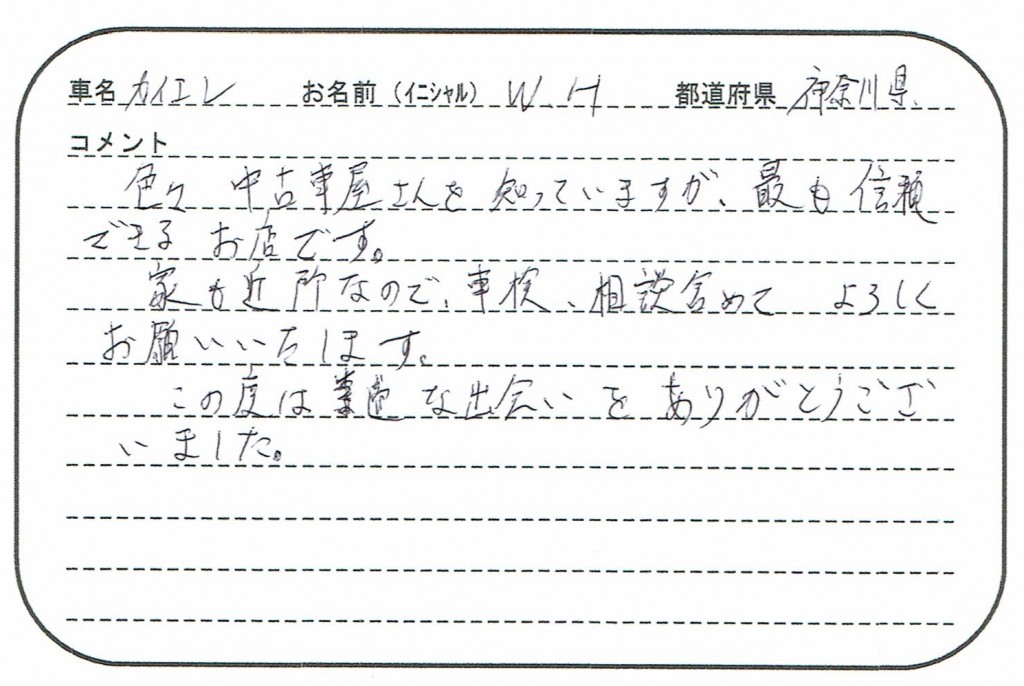 車名 カイエン お名前(イニシャル) W.H 都道府県 神奈川県
コメント
色々 中古車屋さんを 知っていますが、最も信頼
できる お店です。
家も近所なので、車検、相談含めて よろしく
お願いいたします。
この度は な出会いを ありがとうござ
いました。